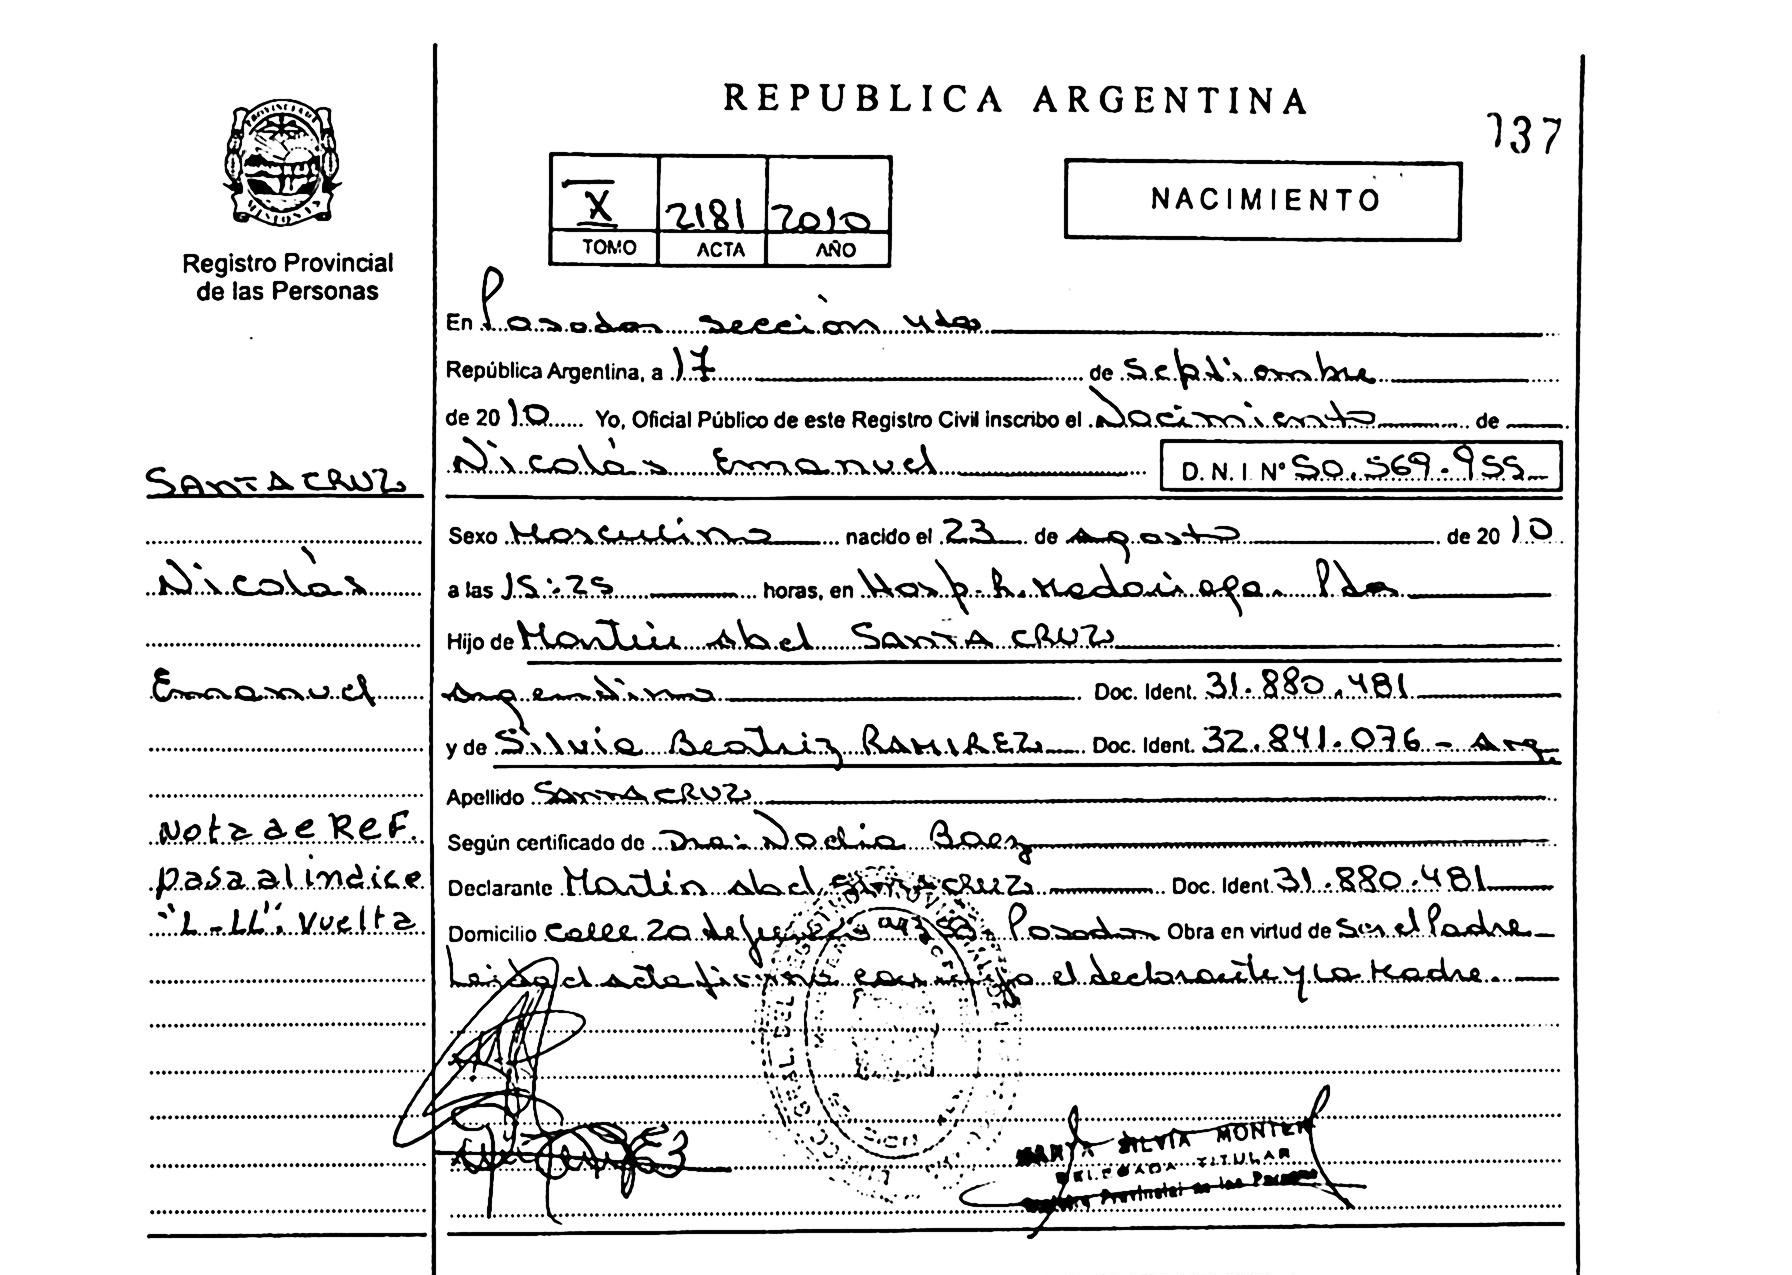 REPUBLICA ARGENTINA
137
PROVINCIA DE
MISIONES
Registro Provincial
de las Personas
X 2181 2010
TOMO ACTA AÑO
NACIMIENTO
En Posadas sección 4ta
República Argentina, a 17 de Septiembre
de 2010 Yo, Oficial Público de este Registro Civil inscribo el Nacimiento de
Nicolás Emanuel D.N.I. Nº 50.569.955
SANTA CRUZ
Sexo Masculino nacido el 23 de agosto de 2010
Nicolás
a las 15:25 horas, en Hosp. R. Madariaga. Pdas
Hijo de Martín Abel SANTA CRUZ
Emanuel
argentino Doc. Ident. 31.880.481
y de Silvia Beatriz RAMIREZ Doc. Ident. 32.841.076 - Arg.
Apellido SANTA CRUZ
Nota de Ref.
Según certificado de Dra: Nadia Baez
pasa al indice
Declarante Martín Abel SANTA CRUZ Doc. Ident 31.880.481
"L-LL". Vuelta
Domicilio calle 20 de Posadas Obra en virtud de Ser el Padre
Leida el acta firma conmigo el declarante y la Madre.
SILVIA
DELEGADA TITULAR
Registro Provincial de las Personas